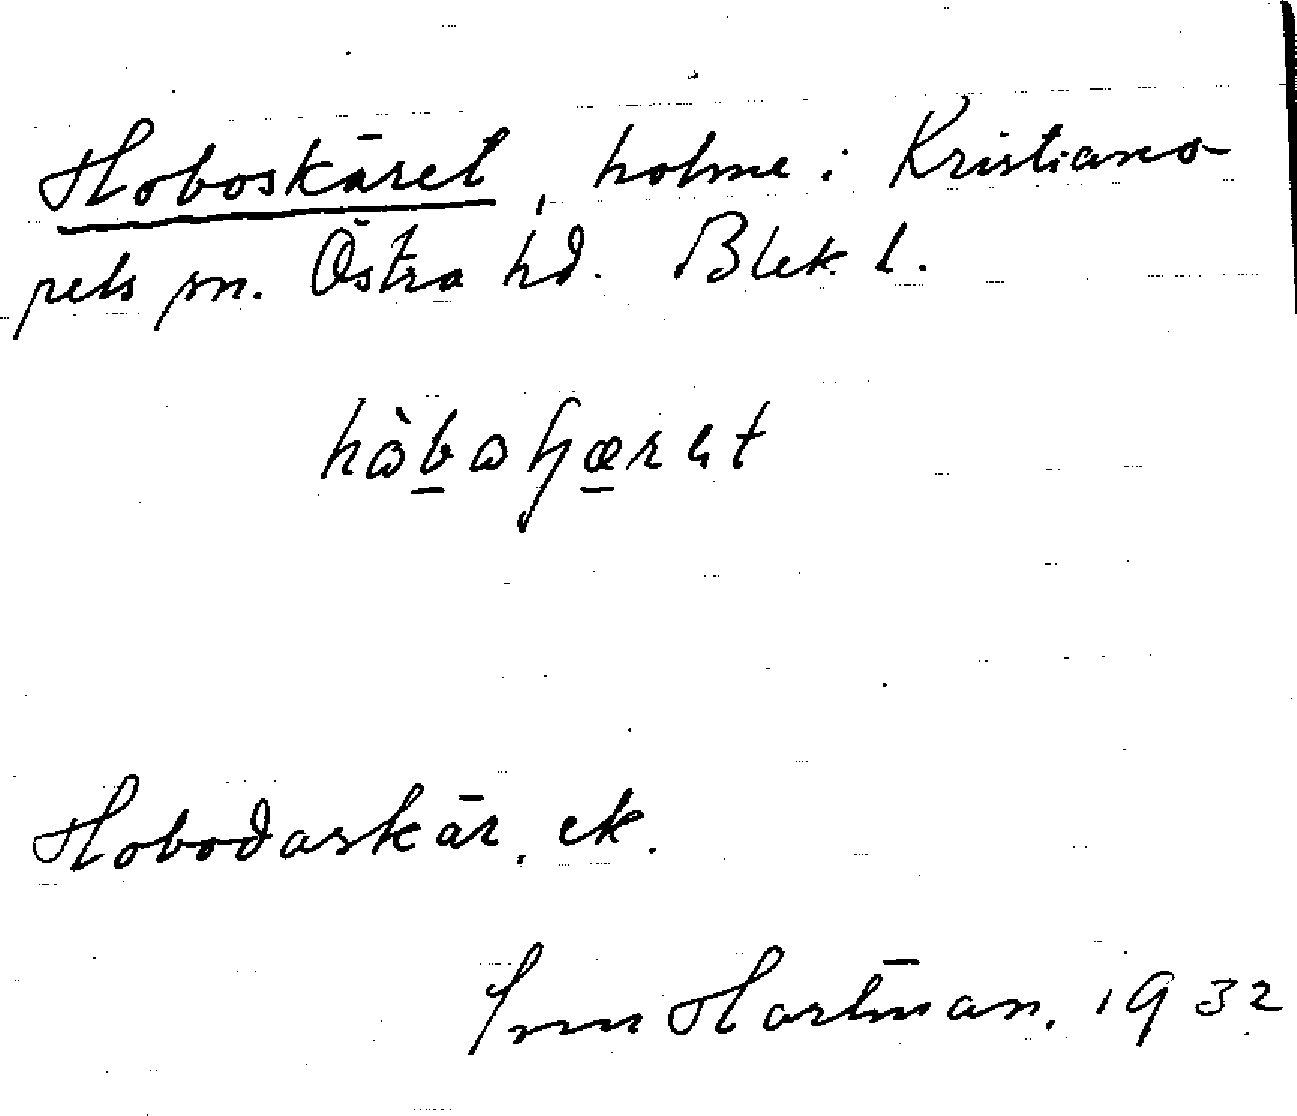 Hoboskäret, holme i Kristiano-
pels sn. Östra hd. Blek. l.
Hobodaskär. ek.
Hartman. 1932